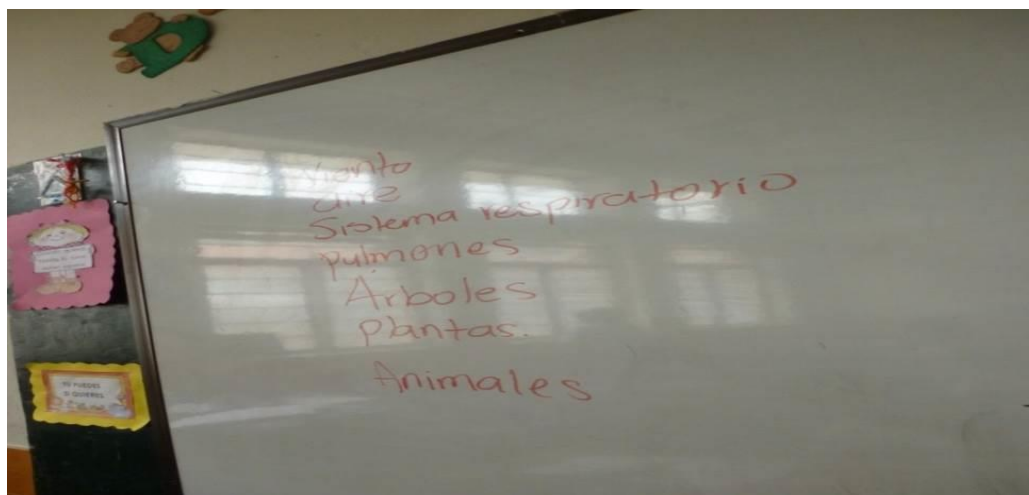 viento
aire
Sistema respiratorio
pulmones
Árboles
plantas.
Animales
SI PUEDES
O QUIERES